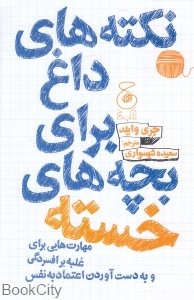 نکته‌های
داغ
برای
بچه‌های
خسته
جری وایلد
مترجم:
سعیده کهسواری
مهارت‌هایی برای
غلبه بر افسردگی
و به دست آوردن اعتماد به نفس
BookCity